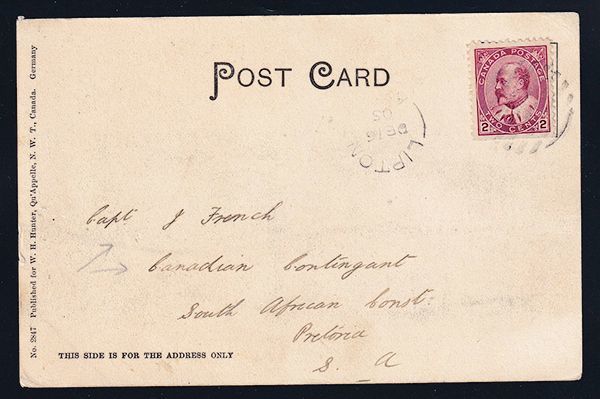 POST CARD
CANADA POSTAGE
2 TWO CENTS 2
LIPTON
DE 16
05
Capt J French
Canadian Contingent
South African Const:
Pretoria
S. A
THIS SIDE IS FOR THE ADDRESS ONLY
No. 2847 Published for W. H. Hunter, Qu'Appelle, N. W. T., Canada. Germany